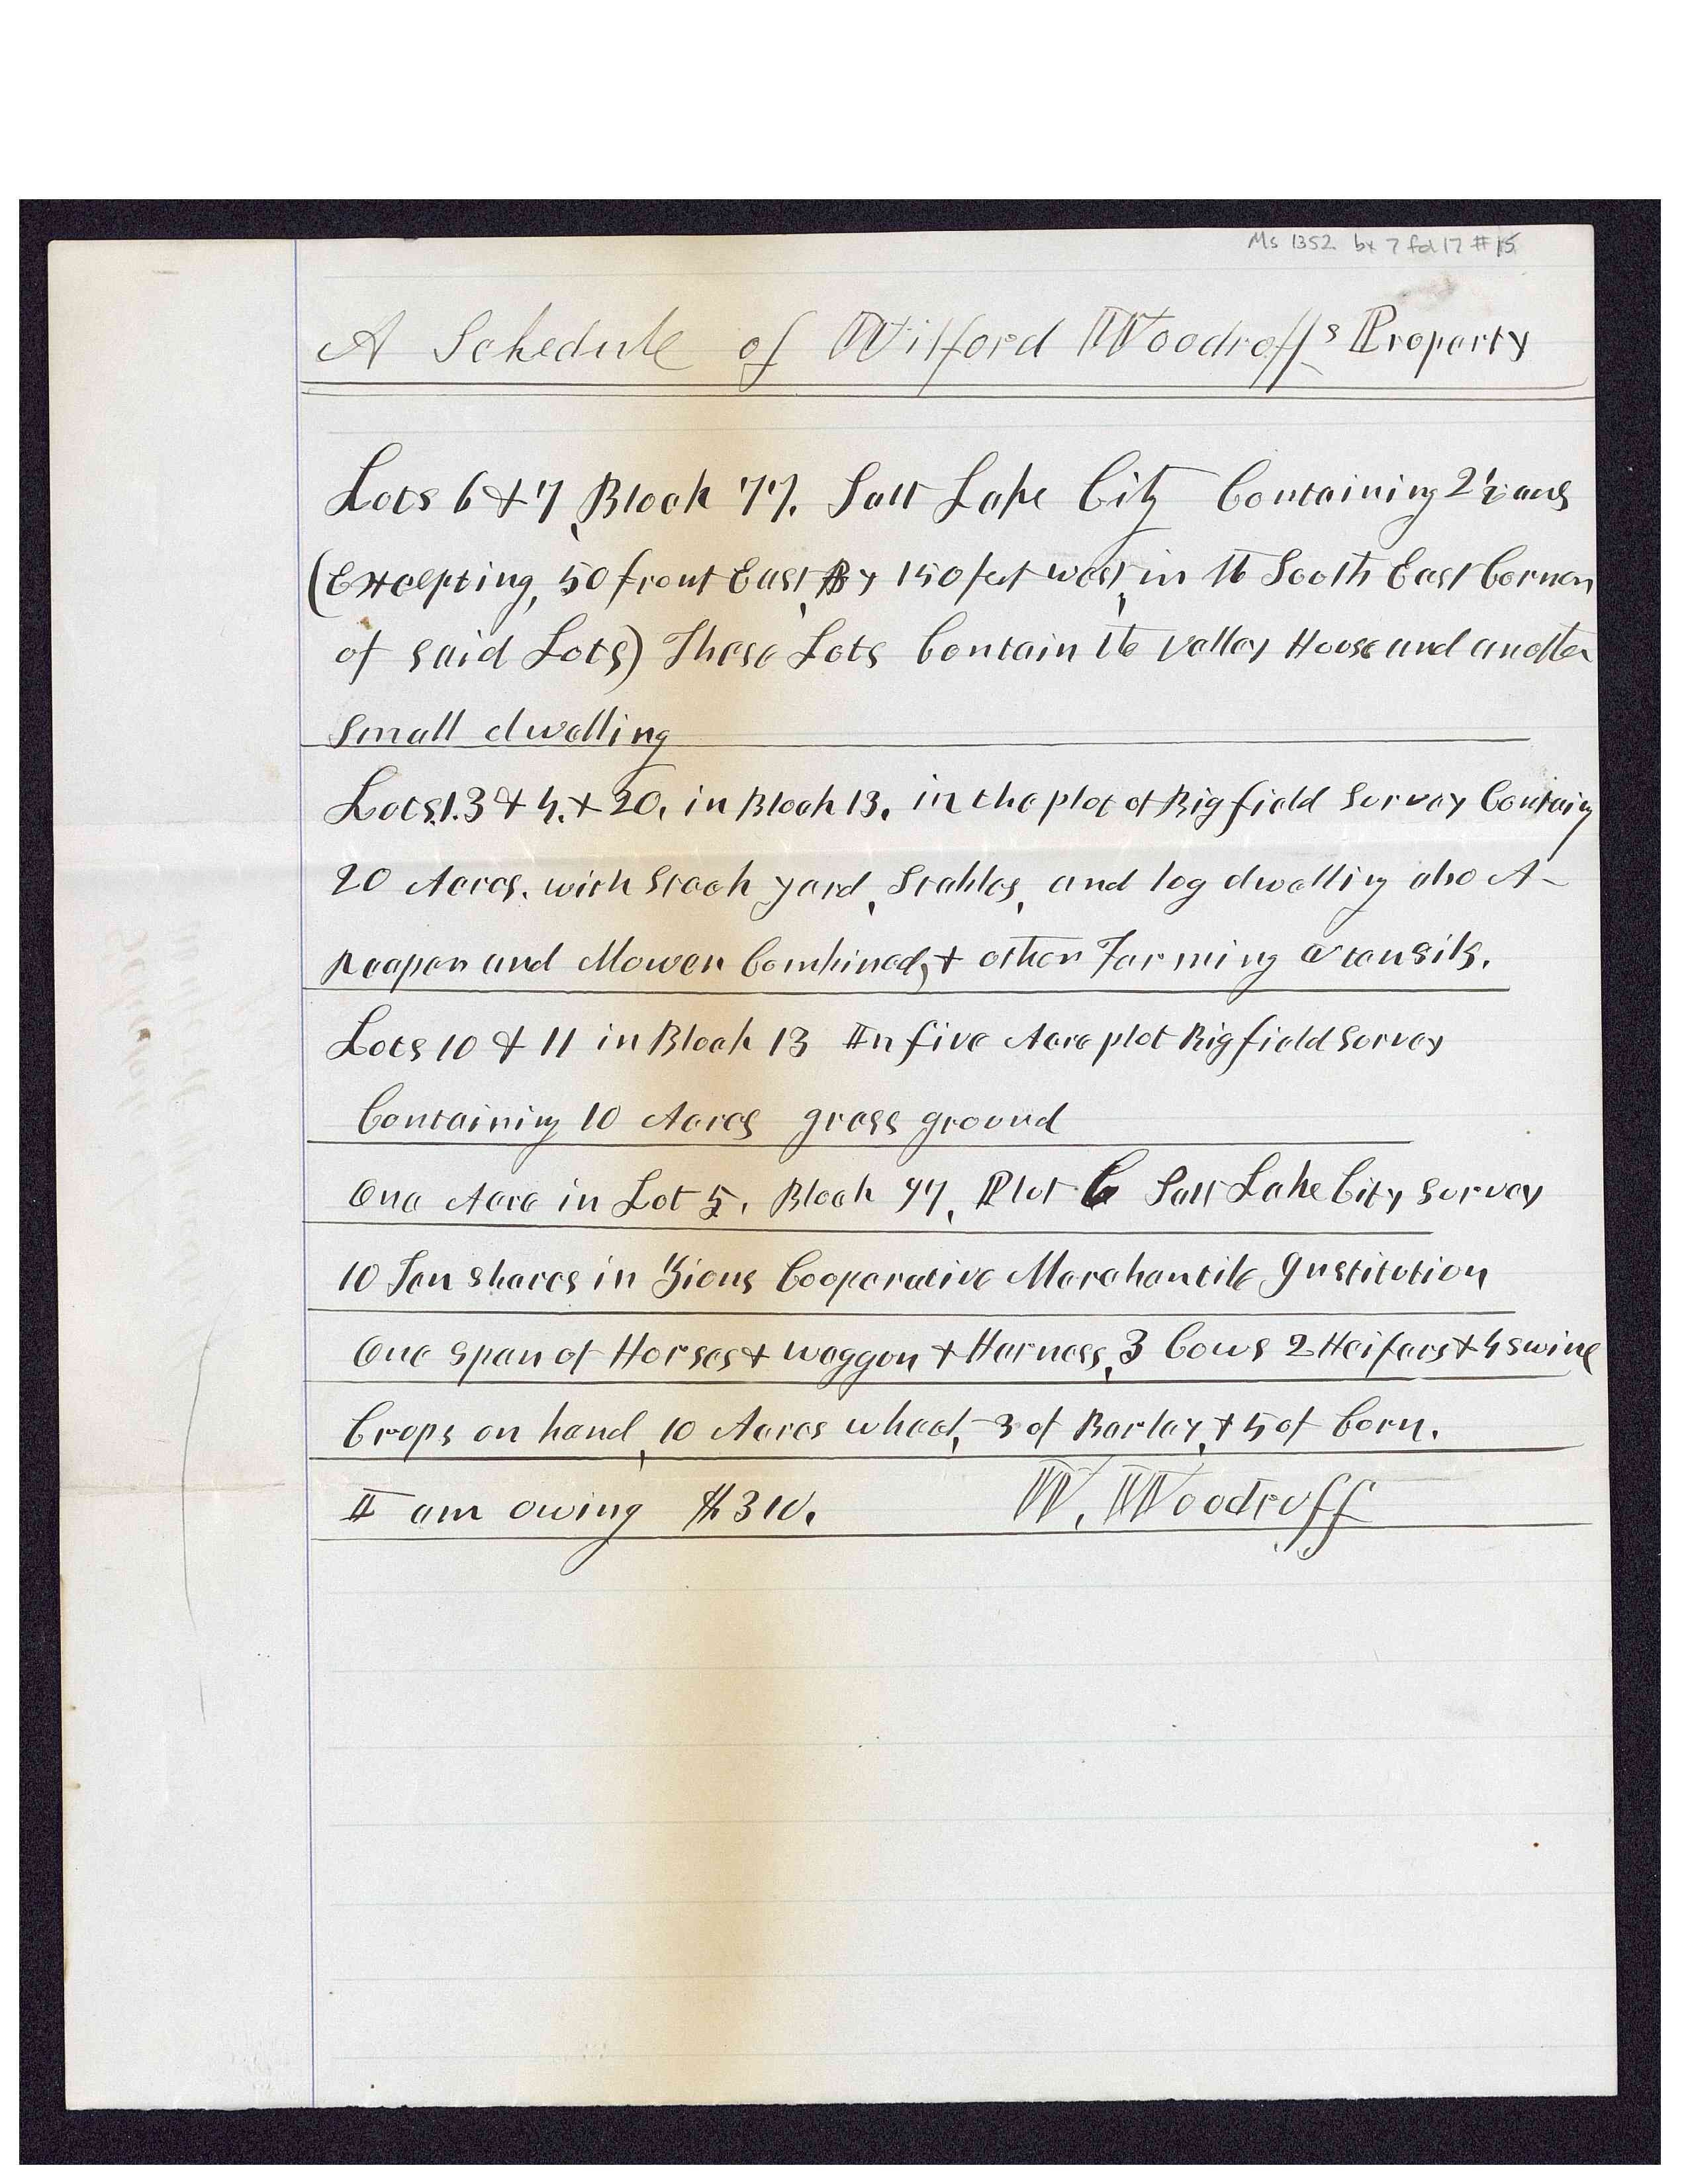 Ms 1352 bx 7 fd 17 #15
A Schedule of Wilford Woodruff's Property
Lots 6 & 7, Block 77. Salt Lake City Containing 2½ acres
(Excepting, 50 front East, By 150 feet west, in the South East Corner
of said Lots) These Lots Contain the Valley House and another
small dwelling
Lots 1. 3 & 4. & 20. in Block 13. in the plot of Big field Survey Containing
20 Acres. with Stack yard, Stables, and log dwelling also A-
Reaper and Mower Combined, & other Farming utensils.
Lots 10 & 11 in Block 13 In five Acre plot Big field Survey
Containing 10 Acres grass ground
One Acre in Lot 5. Block 97, Plot C Salt Lake City Survey
10 Ten shares in Zions Cooperative Merchantile Institution
One Span of Horses & waggon & Harness, 3 Cows 2 Heifers & 4 swine
Crops on hand, 10 Acres wheat, 3 of Barley, & 5 of Corn.
I am owing $310. W. Woodruff